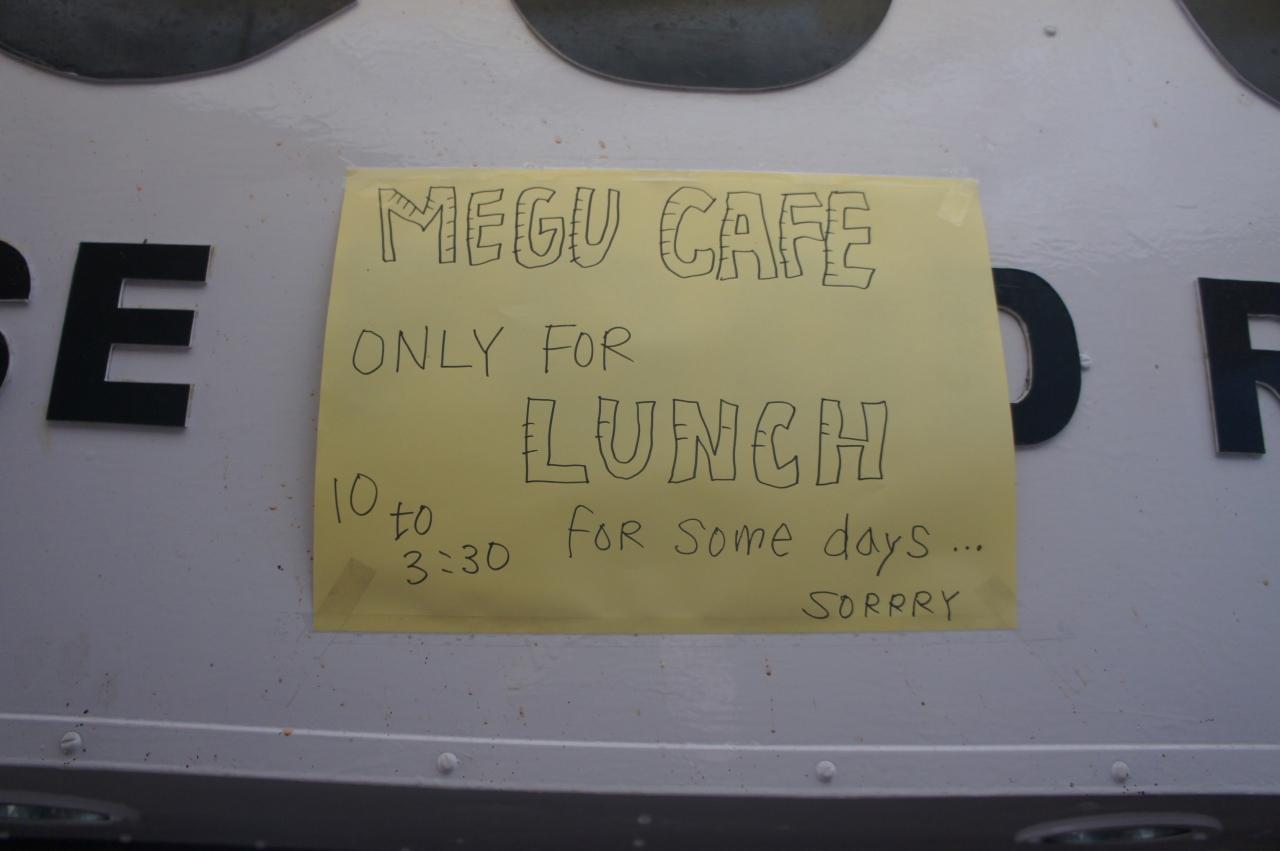 MEGU CAFE
ONLY FOR
LUNCH
10 to
3:30
FOR some days...
SORRRY
SE
D R